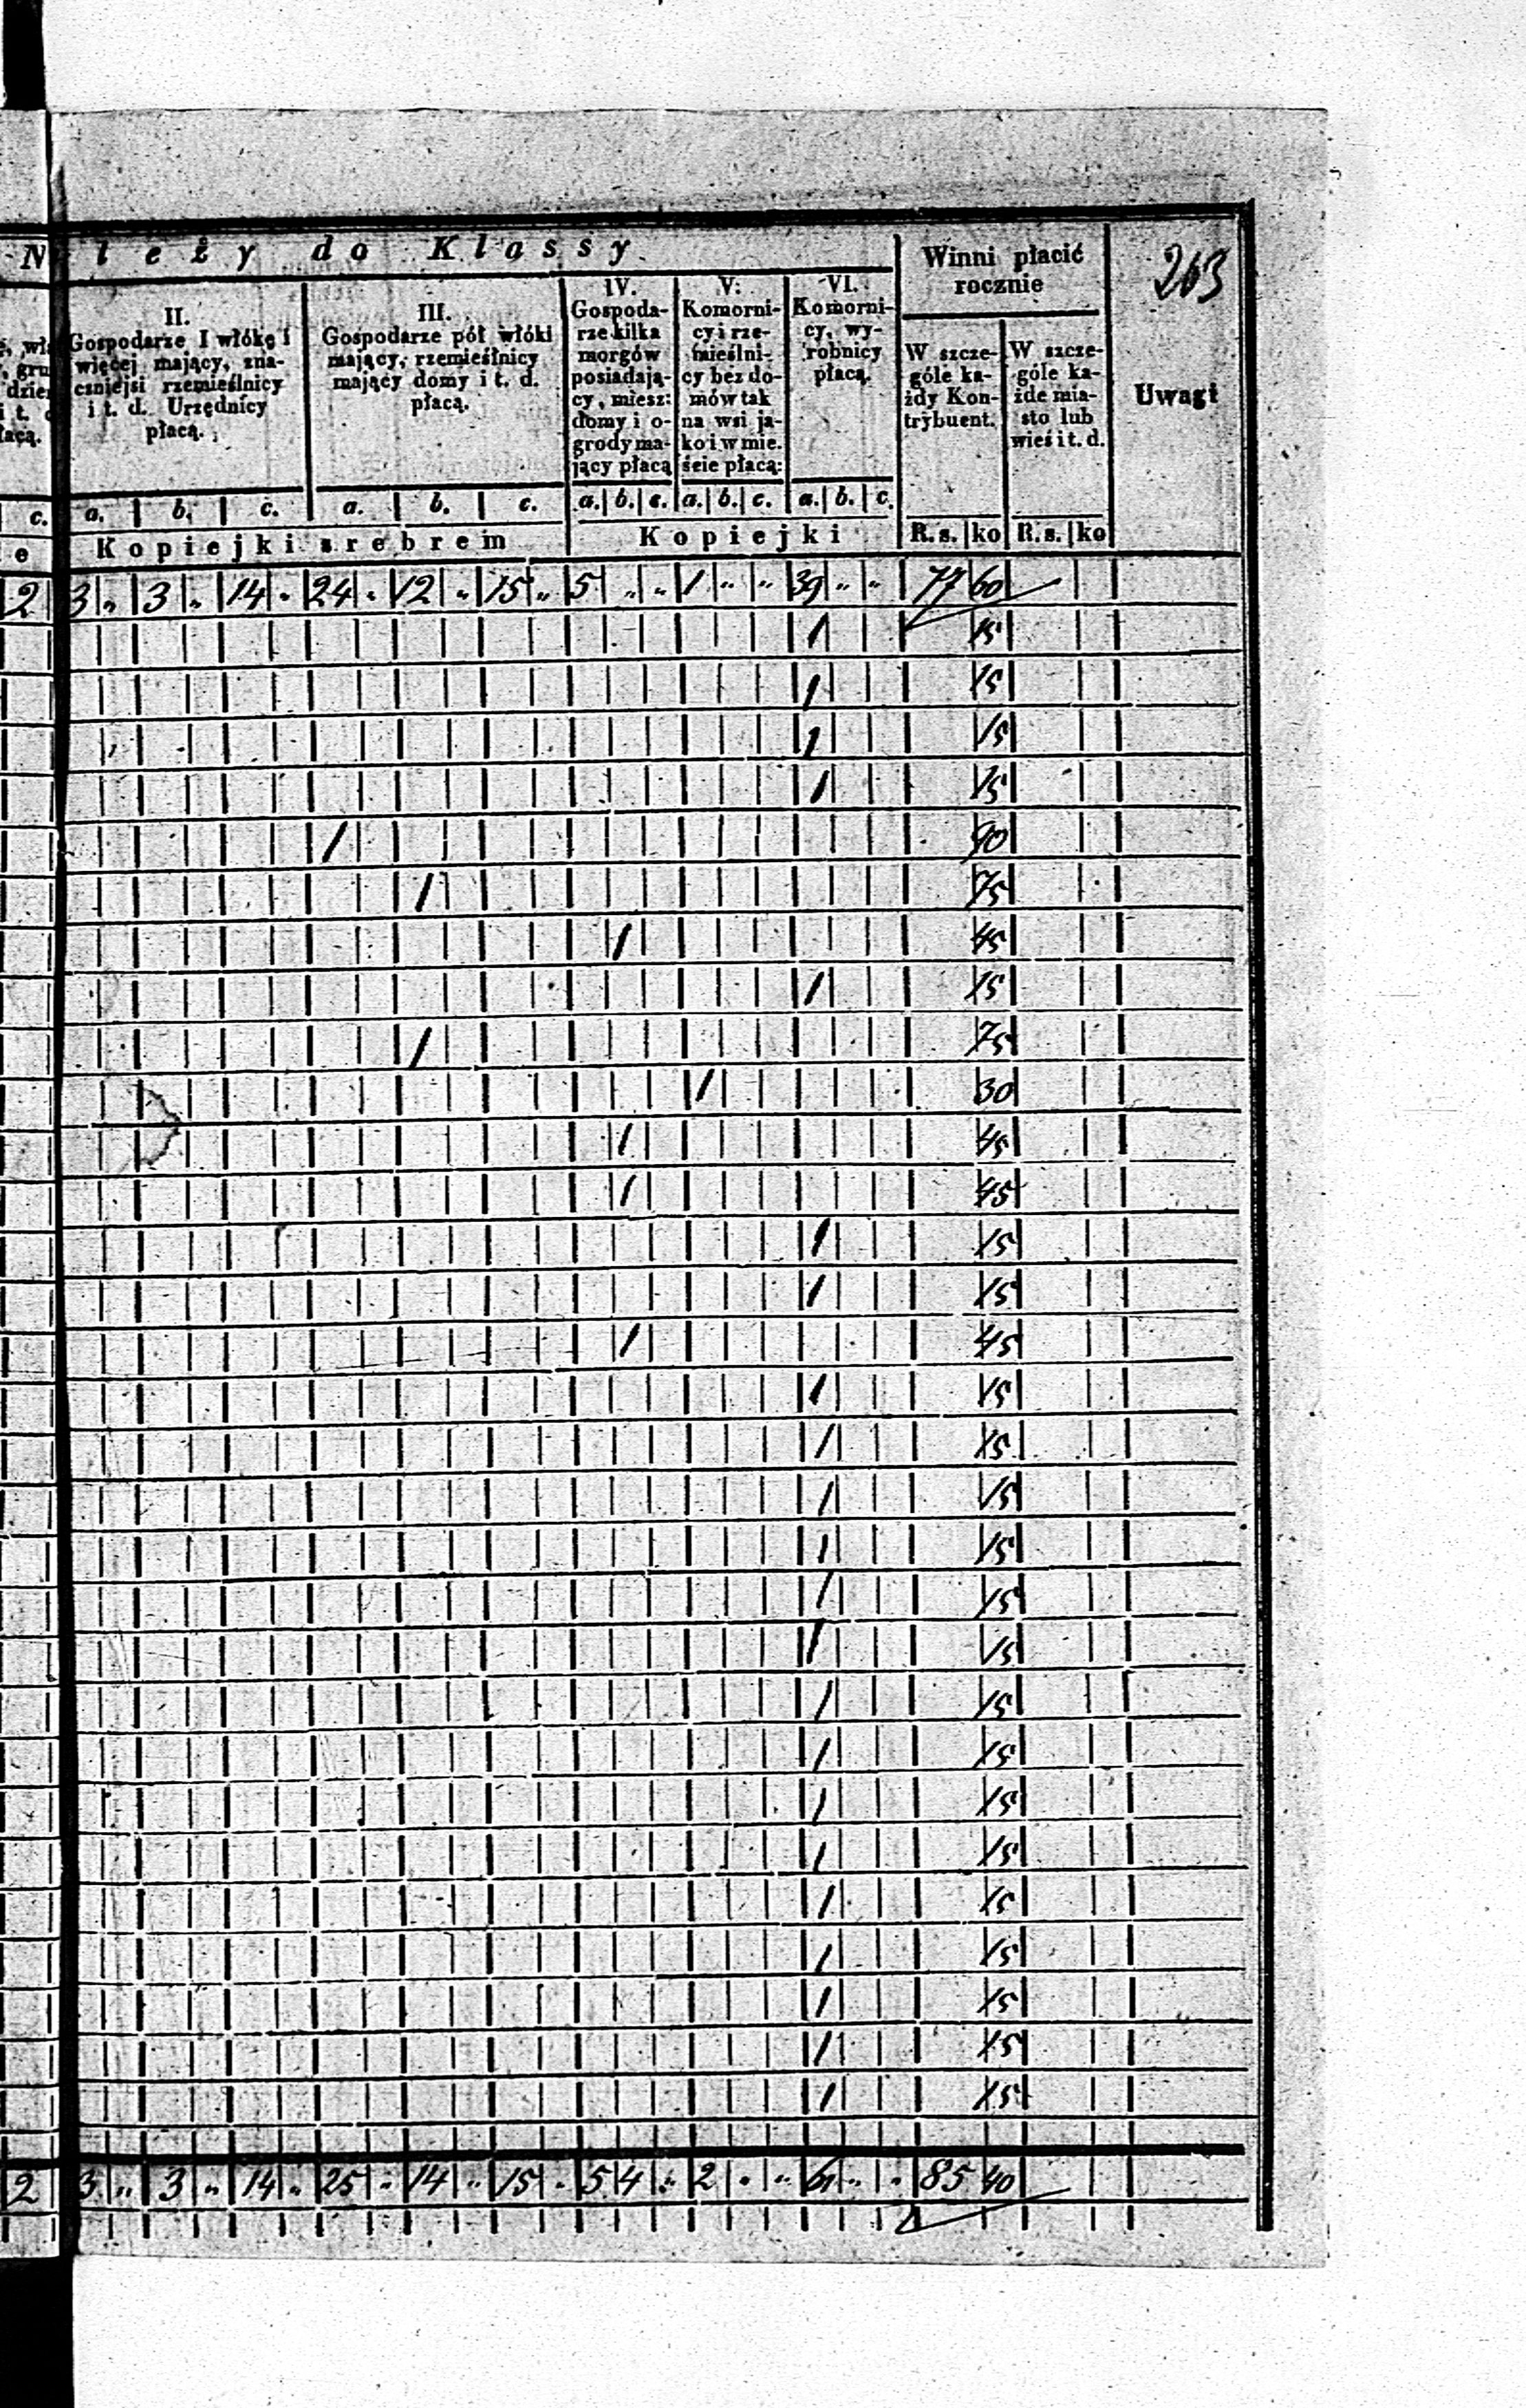 263
N leży do Klassy.
Winni płacić rocznie
Uwagi
c.
e
II.
Gospodarze I włókę i
więcej mający, zna-
czniejsi rzemieślnicy
i t. d. Urzędnicy
płacą.
III.
Gospodarze pół włóki
mający, rzemieślnicy
mający domy i t. d.
płacą.
IV.
Gospoda-
rze kilka
morgów
posiadają-
cy, miesz:
domy i o-
grody ma-
jący płacą
V.
Komorni-
cy i rze-
mieślni-
cy bez do-
mów tak
na wsi ja-
ko i w mie.
ście płacą:
VI.
Komorni-
cy, wy-
robnicy
płacą.
W szcze-
góle ka-
żdy Kon-
trybuent.
W szcze-
góle ka-
żde mia-
sto lub
wieś i t. d.
a. b. c. a. b. c. a. b. c. a. b. c. a. b. c.
Kopiejki srebrem Kopiejki R.s. ko R.s. ko
2 3 „ 3 „ 14 „ 24 „ 12 „ 15 „ 5 „ „ 1 „ „ 39 „ „ 77 60
1 15
1 15
1 15
1 15
1 90
1 75
1 45
1 15
1 75
1 30
1 45
1 45
1 15
1 15
1 45
1 15
1 15
1 15
1 15
1 15
1 15
1 15
1 15
1 15
1 15
1 15
1 15
1 15
1 15
1 15
2 3 „ 3 „ 14 „ 25 „ 14 „ 15 „ 5 4 „ 2 „ „ 61 „ „ 85 40